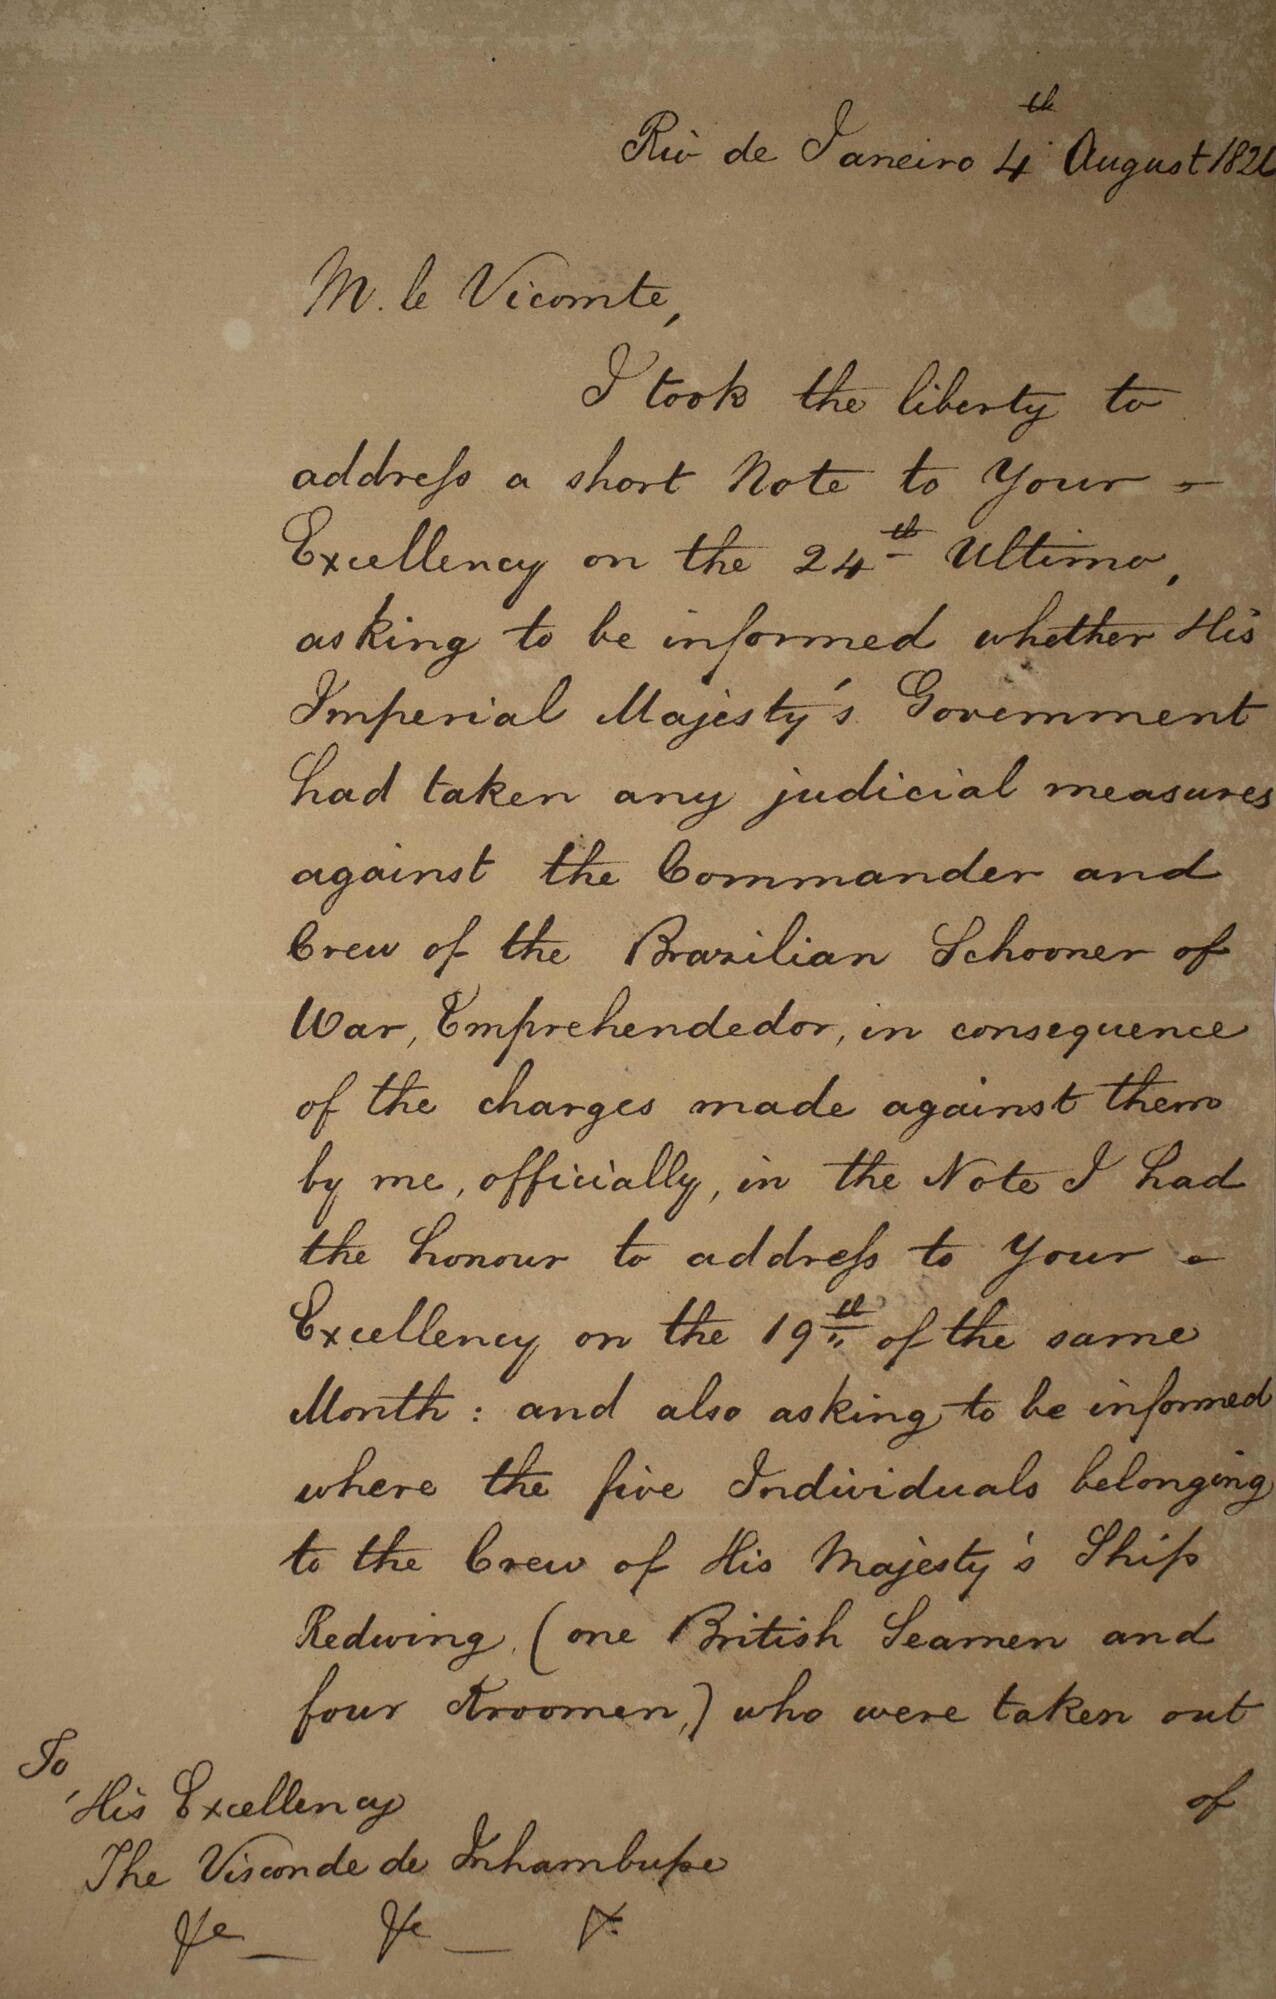 Rio de Janeiro 4th August 1826
M. le Vicomte,
I took the liberty to
addreſs a short Note to Your -
Excellency on the 24th Ultimo,
asking to be informed whether His
Imperial Majesty's Government
had taken any judicial measures
against the Commander and
Crew of the Brazilian Schooner of
War, Emprehendedor, in consequence
of the charges made against them
by me, officially, in the Note I had
the honour to addreſs to Your -
Excellency on the 19th of the same
Month: and also asking to be informed
where the five Individuals belonging
to the Crew of His Majesty's Ship
Redwing, (one British Seamen and
four Kroomen,) who were taken out
of
To
His Excellency
The Visconde de Inhambupe
&c _ &c _ &c